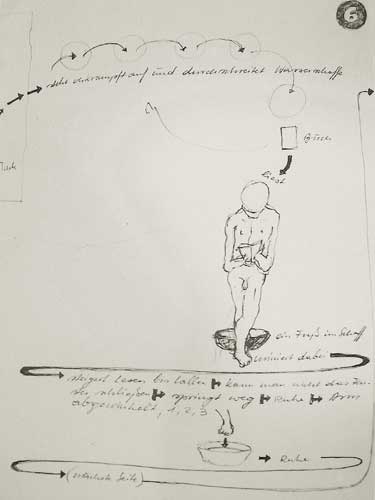 6
steht verkrampft auf und durchschreitet Wasserschaffe
Buch
liest
ein Fuß im Schaff
uriniert dabei
steigert Lesen bis Lallen kann man nicht das Fen-
ster schließen springt weg Ruhe Arm
abgewinkelt, 1, 2, 3
Ruhe
(nächste Seite)